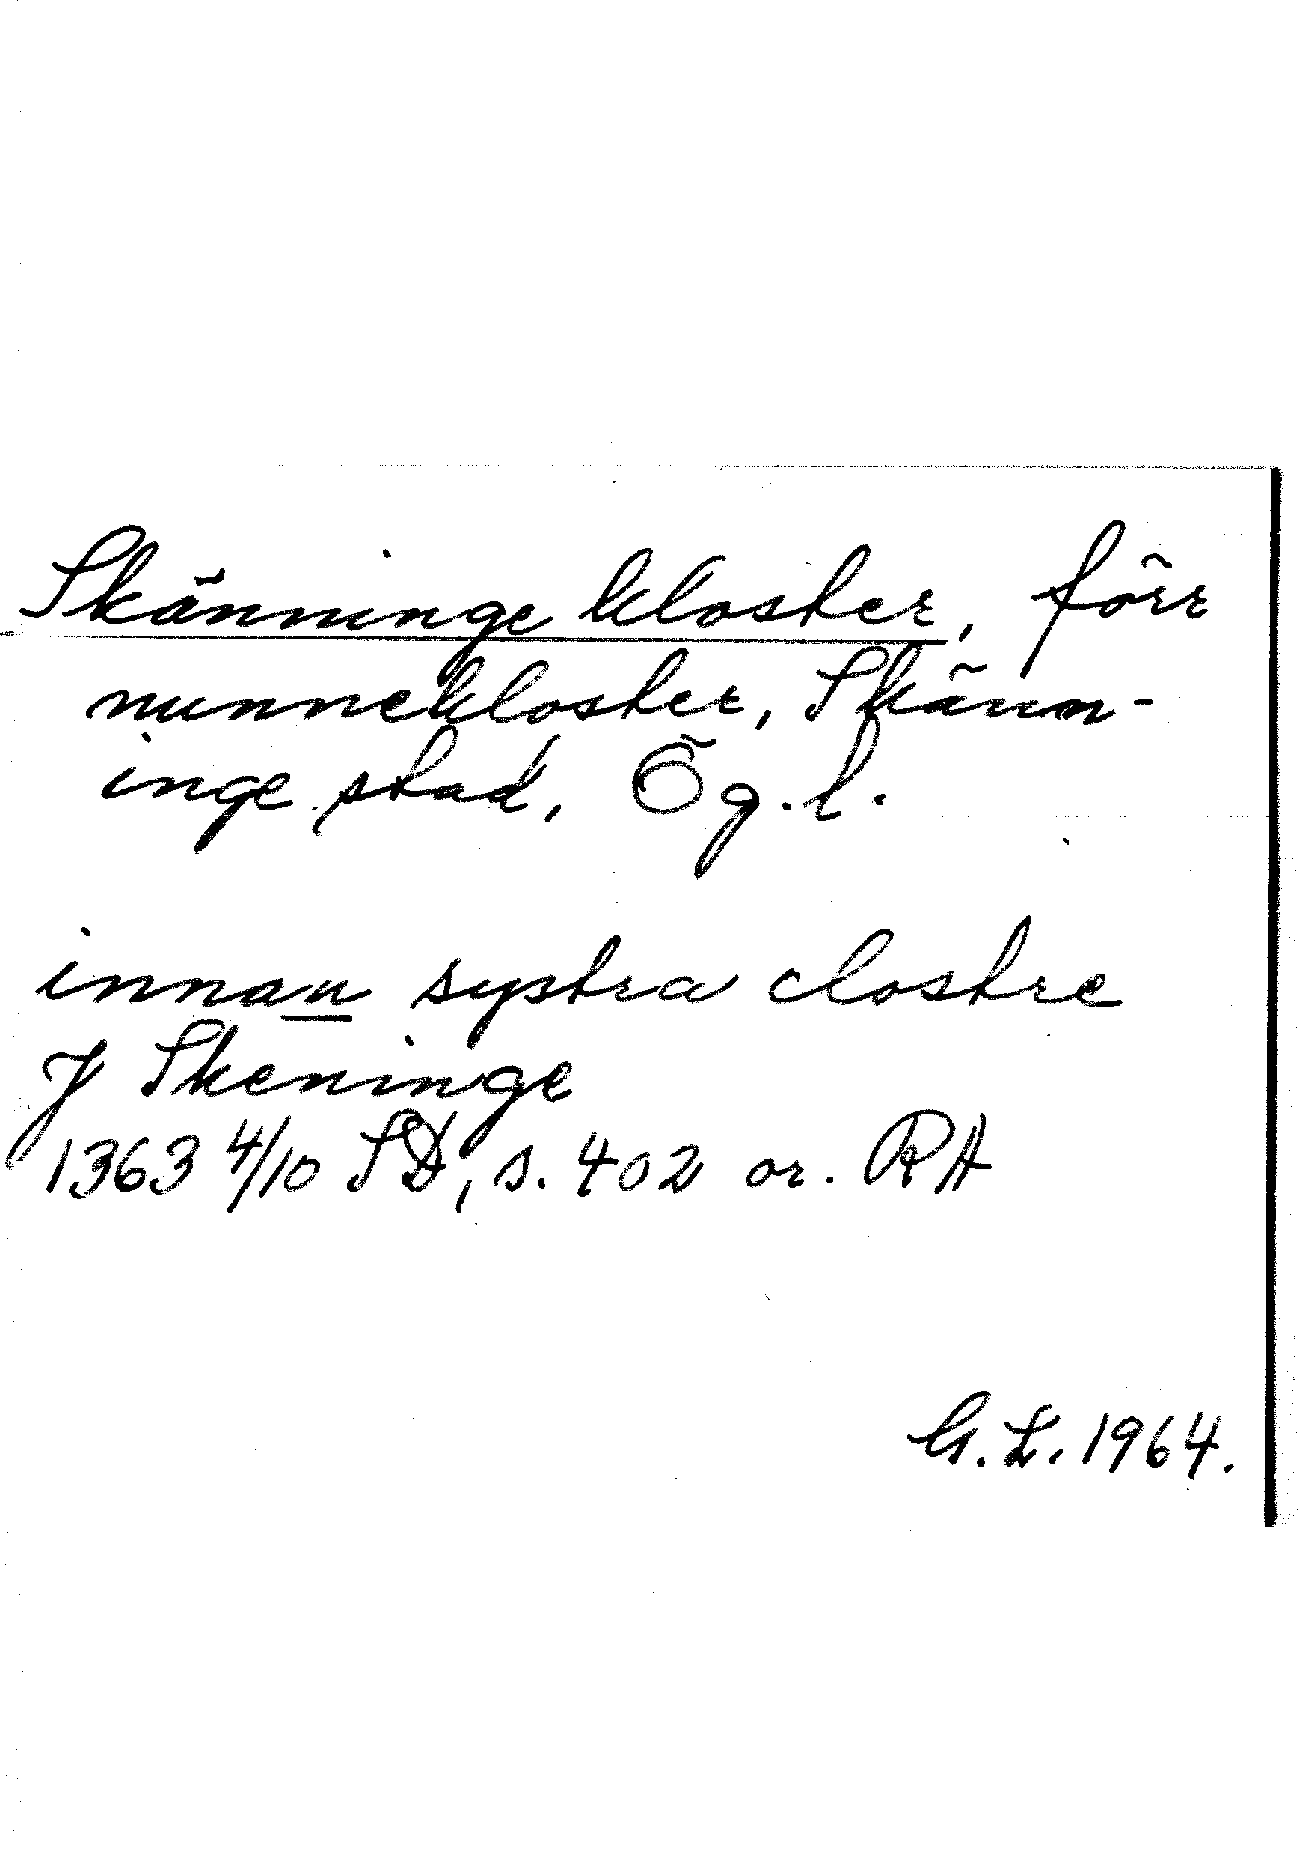 Skänninge kloster, förr
nunnekloster, Skänn-
inge stad, Ög. l.
innan systra clostre
J Skeninge
1363 4/10 SD, s. 402 or. RA
G. L. 1964.